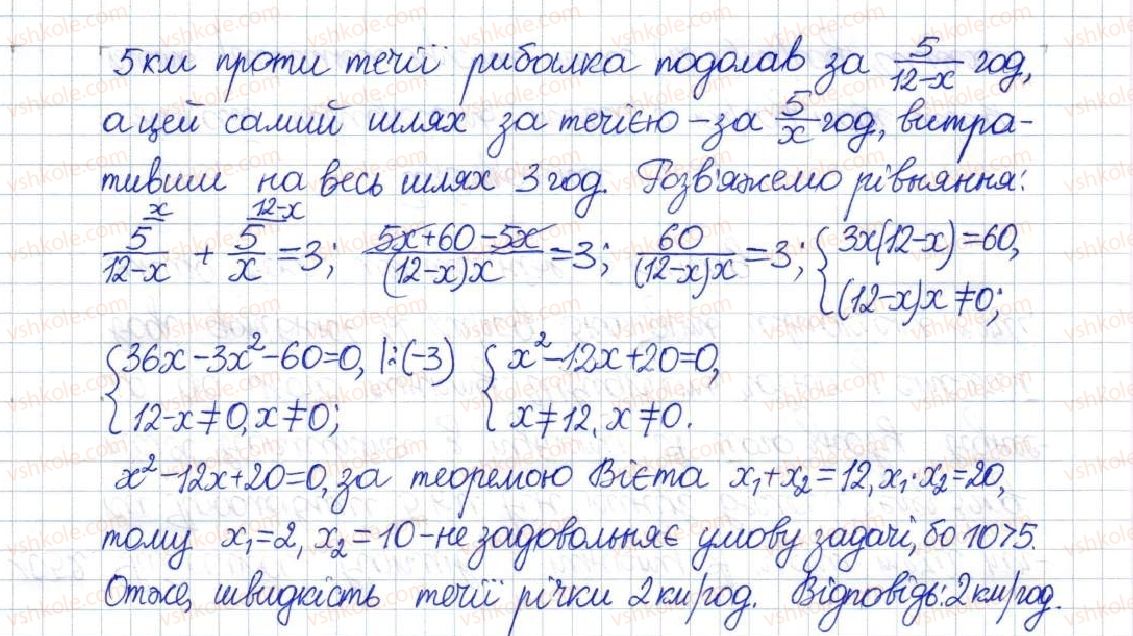 5 км проти течії рибалка подолав за 5/(12-x) год,
а цей самий шлях за течією – за 5/x год, витра-
тивши на весь шлях 3 год. Розв'яжемо рівняння:
x 5/(12-x) + 12-x 5/x = 3; (5x+60-5x)/((12-x)x) = 3; 60/((12-x)x) = 3; { 3x(12-x)=60, (12-x)x≠0;
{ 36x-3x²-60=0, |:(-3) 12-x≠0, x≠0; { x²-12x+20=0, x≠12, x≠0.
x²-12x+20=0, за теоремою Вієта x₁+x₂=12, x₁·x₂=20,
тому x₁=2, x₂=10 – не задовольняє умову задачі, бо 10>5.
Отже, швидкість течії річки 2 км/год. Відповідь: 2 км/год.